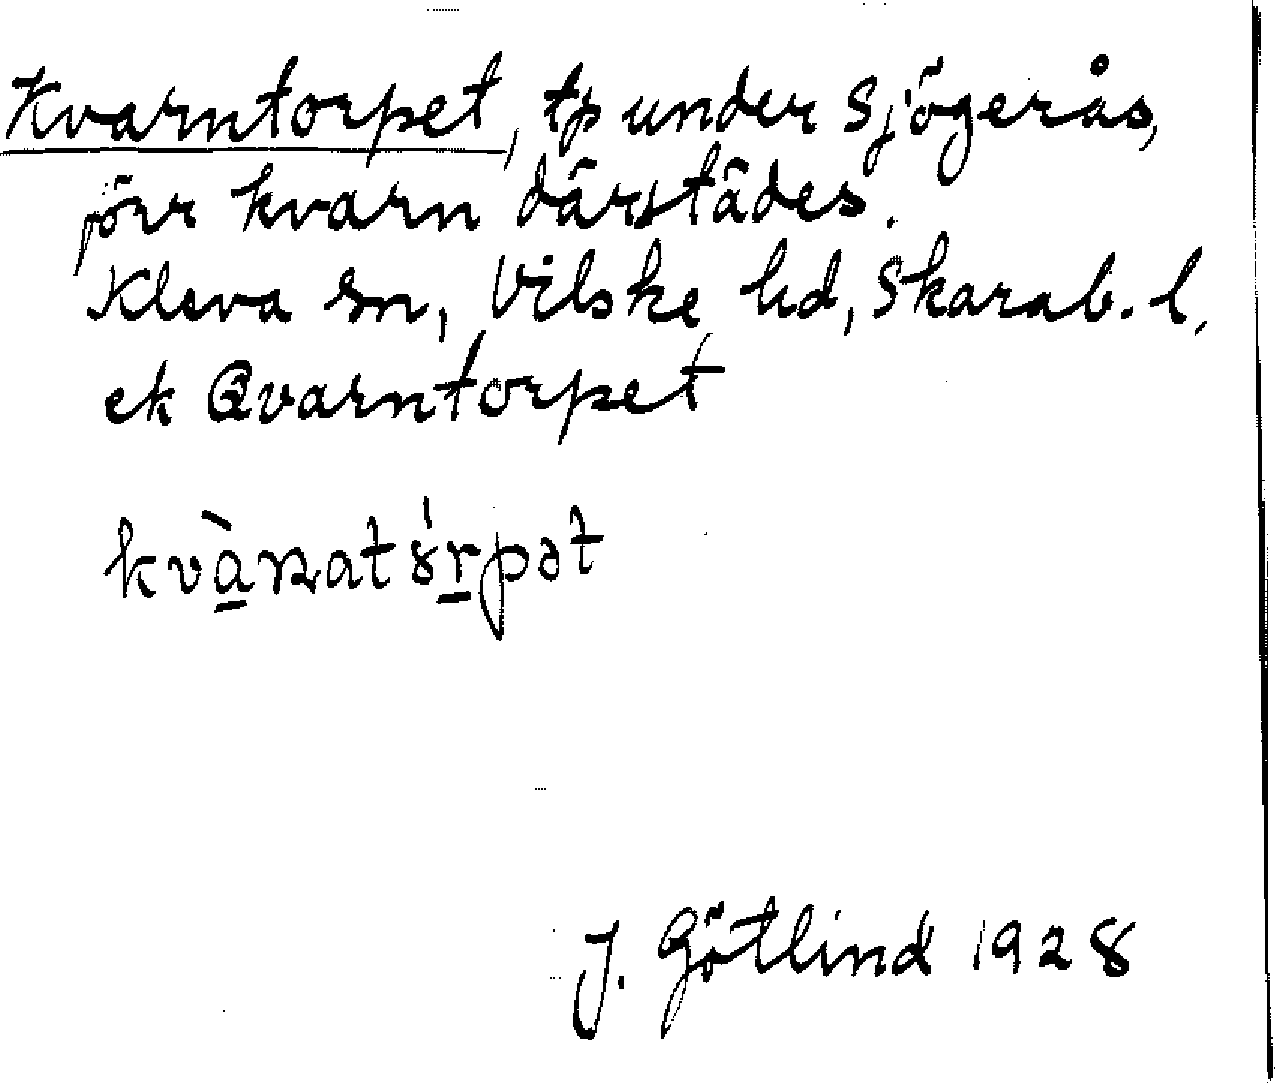 Kvarntorpet, tp under Sjögerås,
förr kvarn därstädes.
Kleva sn, Vilske hd, Skarab. l.
ek Qvarntorpet
kvànatórpət
J. Götlind 1928